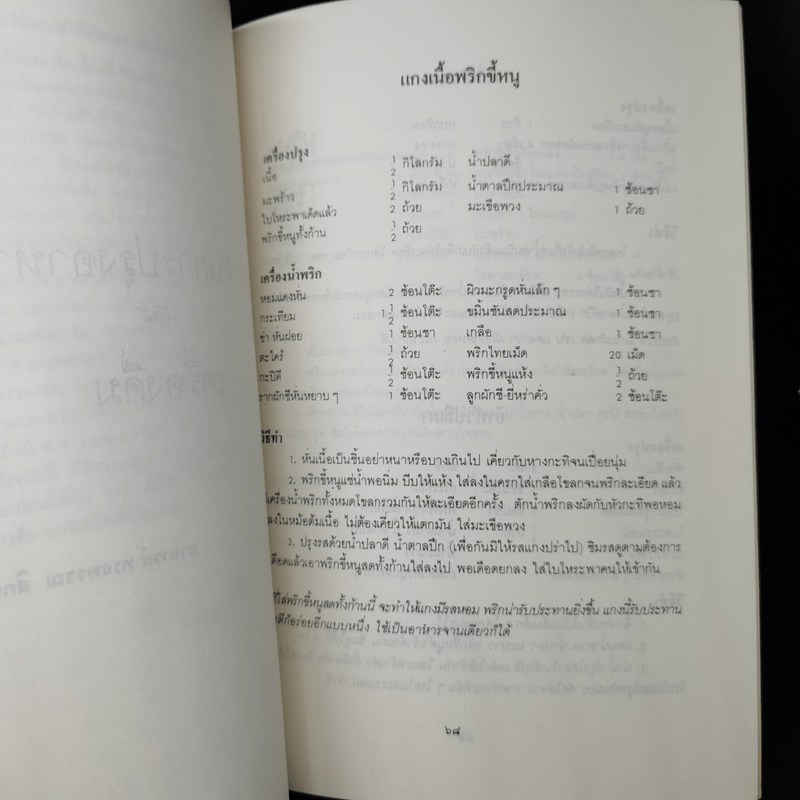 แกงเนื้อพริกขี้หนู
เครื่องปรุง
เนื้อ 1/2 กิโลกรัม น้ำปลาดี
มะพร้าว 1/2 กิโลกรัม น้ำตาลปึกประมาณ 1 ช้อนชา
ใบโหระพาเด็ดแล้ว 2 ถ้วย มะเขือพวง 1 ถ้วย
พริกขี้หนูทั้งก้าน 1/2 ถ้วย
เครื่องน้ำพริก
หอมแดงหั่น 2 ช้อนโต๊ะ ผิวมะกรูดหั่นเล็ก ๆ 1 ช้อนชา
กระเทียม 1 1/2 ช้อนโต๊ะ ขมิ้นชันสดประมาณ 1 ช้อนชา
ข่า หั่นฝอย 1 ช้อนชา เกลือ 1 ช้อนชา
ตะไคร้ 1/2 ถ้วย พริกไทยเม็ด 20 เม็ด
กะปิดี 1/2 ช้อนโต๊ะ พริกขี้หนูแห้ง 1/2 ถ้วย
รากผักชีหั่นหยาบ ๆ 1 ช้อนโต๊ะ ลูกผักชี-ยี่หร่าคั่ว 2 ช้อนโต๊ะ
วิธีทำ
1. หั่นเนื้อเป็นชิ้นอย่าหนาหรือบางเกินไป เคี่ยวกับหางกะทิจนเปื่อยนุ่ม
2. พริกขี้หนูแช่น้ำพอนิ่ม บีบให้แห้ง ใส่ลงในครกใส่เกลือโขลกจนพริกละเอียด แล้ว
เครื่องน้ำพริกทั้งหมดโขลกรวมกันให้ละเอียดอีกครั้ง ตักน้ำพริกลงผัดกับหัวกะทิพอหอม
ลงในหม้อต้มเนื้อ ไม่ต้องเคี่ยวให้แตกมัน ใส่มะเขือพวง
3. ปรุงรสด้วยน้ำปลาดี น้ำตาลปึก (เพื่อกันมิให้รสแกงปร่าไป) ชิมรสดูตามต้องการ
เดือดแล้วเอาพริกขี้หนูสดทั้งก้านใส่ลงไป พอเดือดยกลง ใส่ใบโหระพาคนให้เข้ากัน
ใส่พริกขี้หนูสดทั้งก้านนี้ จะทำให้แกงมีรสหอม พริกน่ารับประทานยิ่งขึ้น แกงนี้รับประทาน
ดีก็อร่อยอีกแบบหนึ่ง ใช้เป็นอาหารจานเดียวก็ได้
๖๘